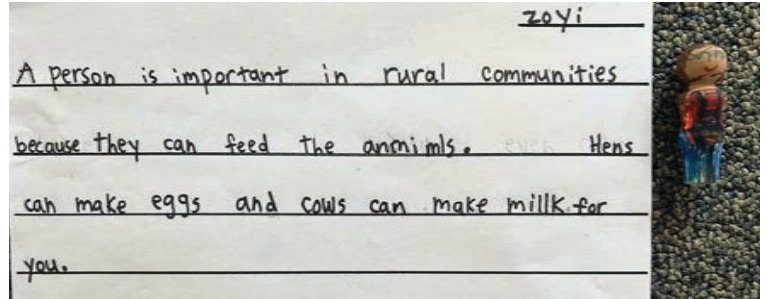 zoyi
A person is important in rural communities
because they can feed the anmimls. Hens
can make eggs and cows can make millk for
you.